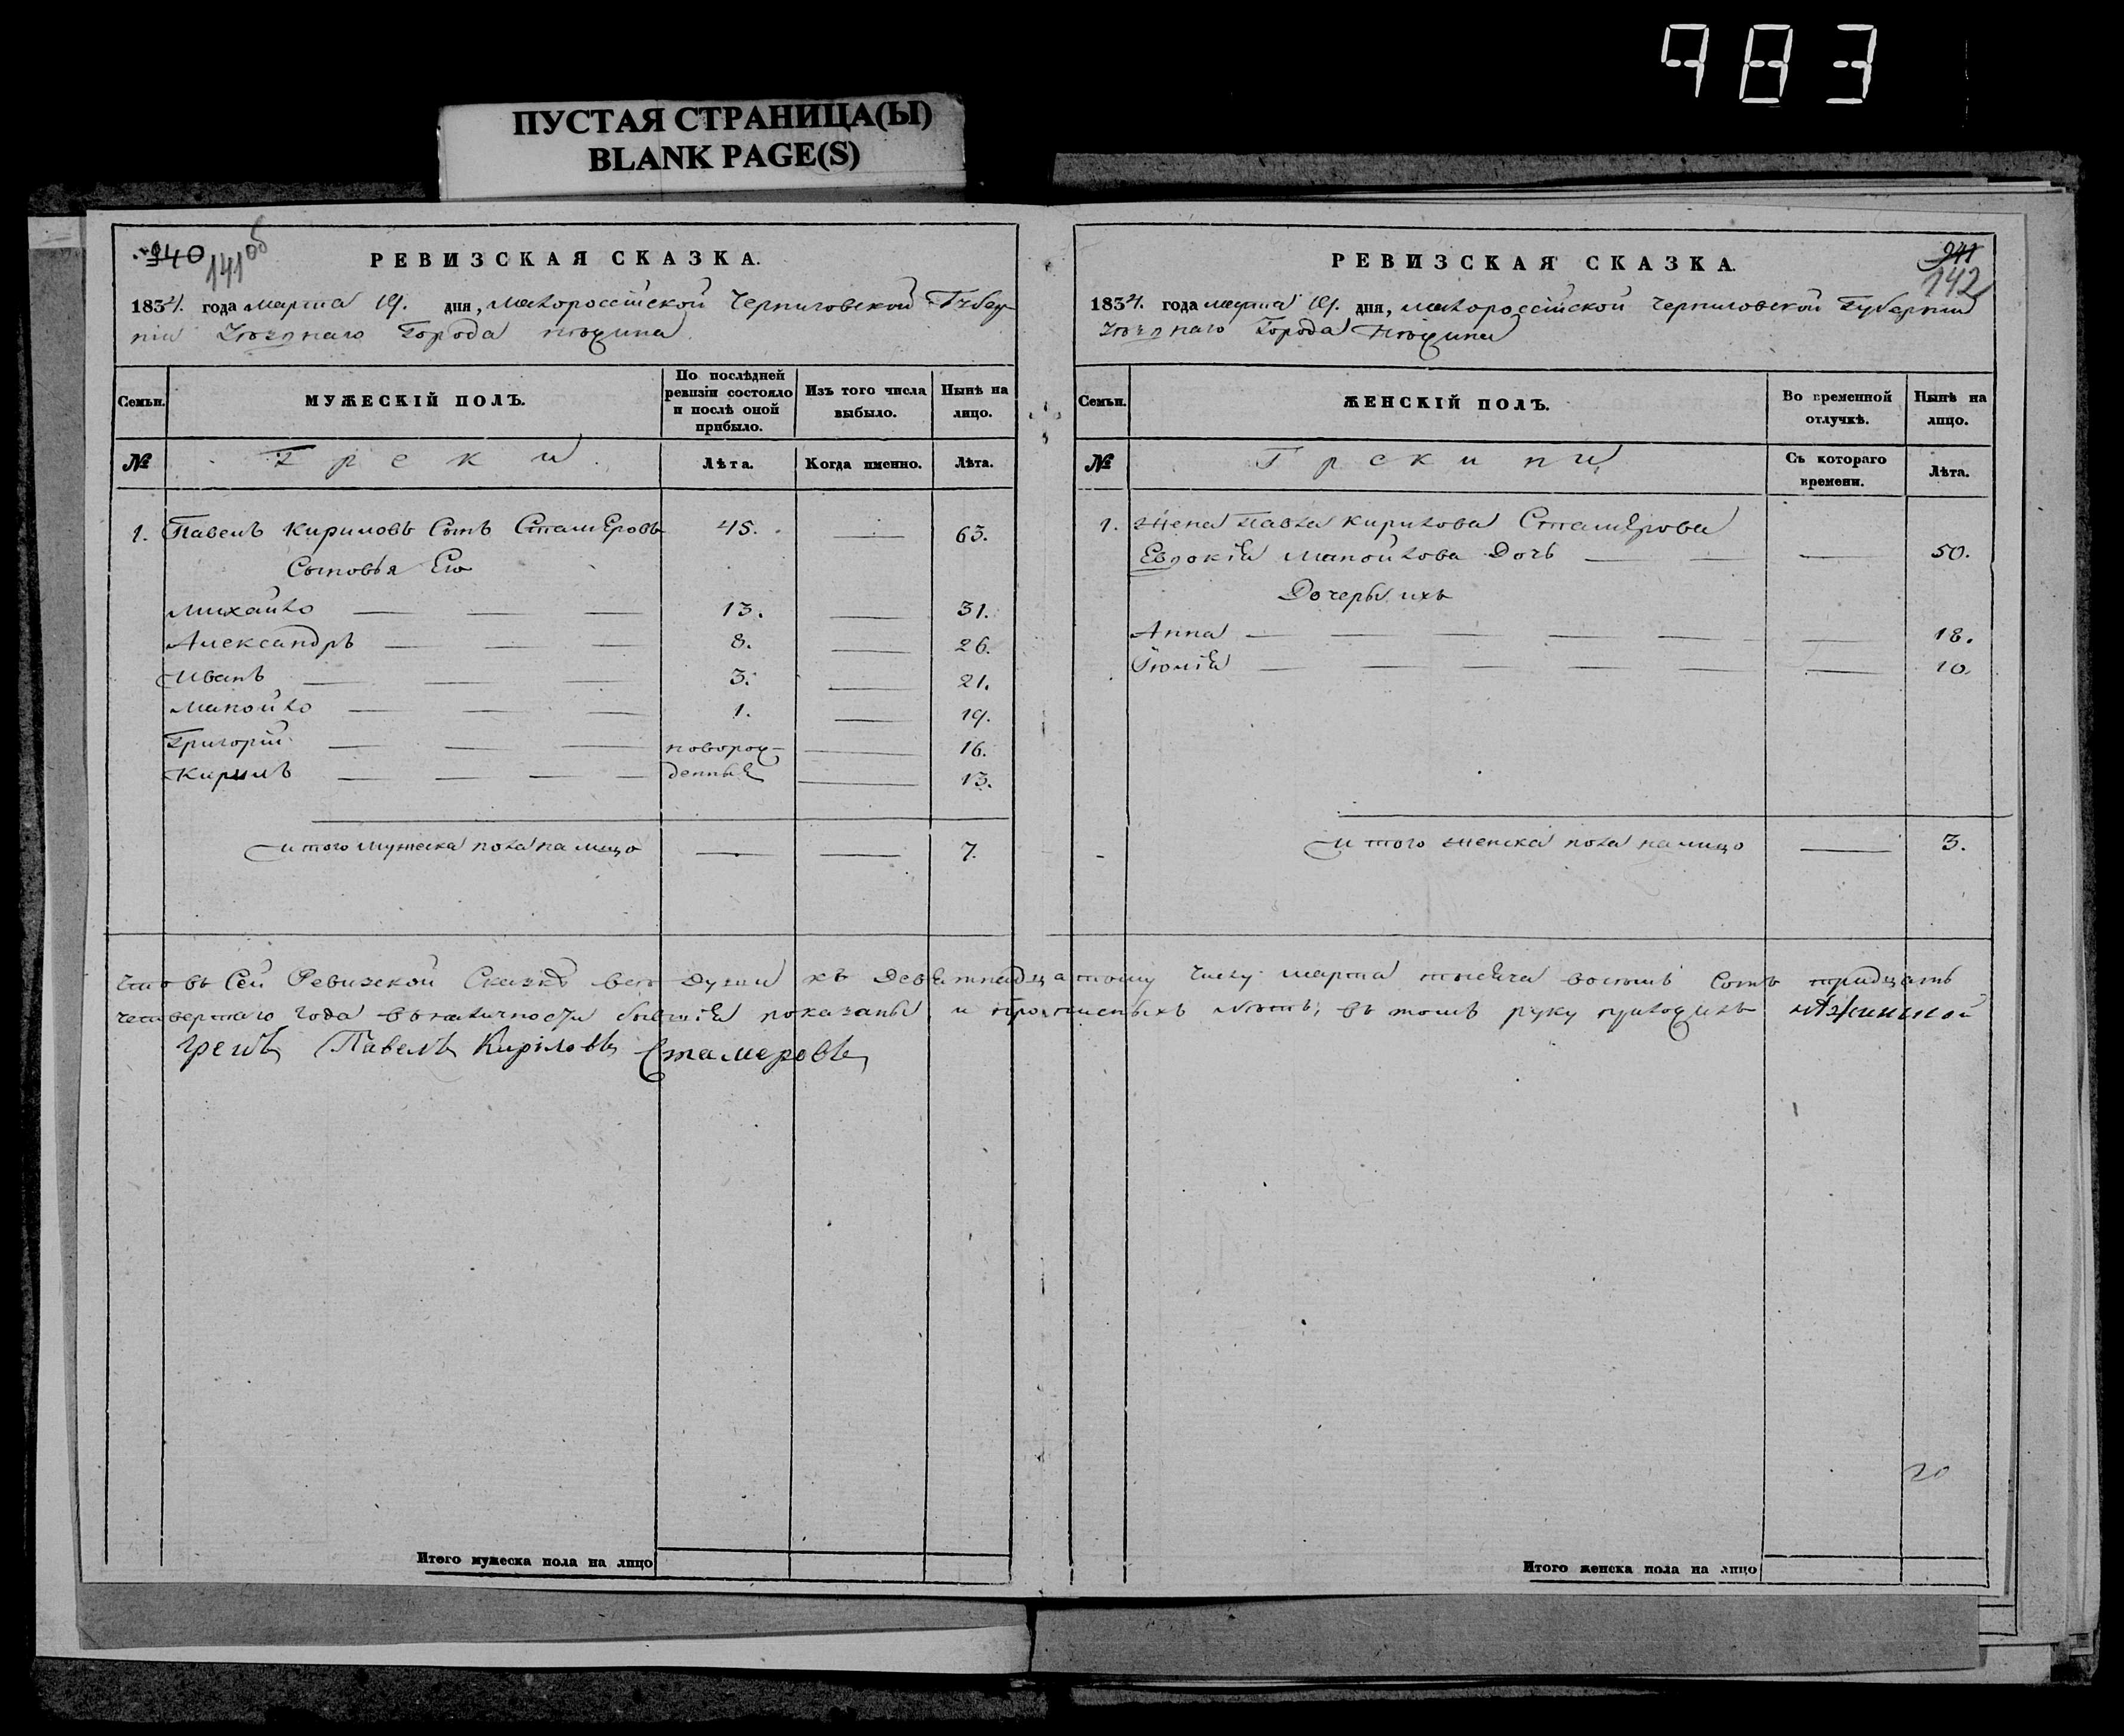 983
ПУСТАЯ СТРАНИЦА(Ы)
BLANK PAGE(S)
140
141об
РЕВИЗСКАЯ СКАЗКА.
1834. года марта 19. дня, малороссійской Черниговской Губер-
ніи Уѣзднаго Города Нѣжина.
Семьи.
МУЖЕСКІЙ ПОЛЪ.
По послѣдней ревизіи состояло и послѣ оной прибыло.
Изъ того числа выбыло.
Нынѣ на лицо.
№
Греки.
Лѣта.
Когда именно.
Лѣта.
1. Павелъ Кириловъ Сынъ Стамеровъ 45. — 63.
Сыновья Его
Михайло — — — 13. — 31.
Александръ — — — 8. — 26.
Иванъ — — — 3. — 21.
Манойло — — — 1. — 19.
Григорій — — — новорож- — 16.
Кирилъ — — — денныя — 13.
Итого мужеска пола на лицо — — 7.
241
142
РЕВИЗСКАЯ СКАЗКА.
1834. года марта 19. дня, малороссійской Черниговской Губерніи
Уѣзднаго Города Нѣжина
Семьи.
ЖЕНСКІЙ ПОЛЪ.
Во временной отлучкѣ.
Нынѣ на лицо.
№
Грекини
Съ котораго времени.
Лѣта.
1. Жена Павла Кирилова Стамерова
Евдокія Манойлова Дочь — — — 50.
Дочеры ихъ
Анна — — — — — — 18.
Іюлія — — — — — — 10.
Итого женска пола на лицо — 3.
Что въ Сей Ревизской Сказкѣ всѣ души къ Девятнадцатому числу марта тысяча восемь Сотъ тридцать
четвертаго года въ наличности бывшія показаны, и прописныхъ нѣтъ, въ томъ руку приложилъ Нѣжинской
грекъ Павелъ Кириловъ Стамеровъ
20
Итого мужеска пола на лицо
Итого женска пола на лицо